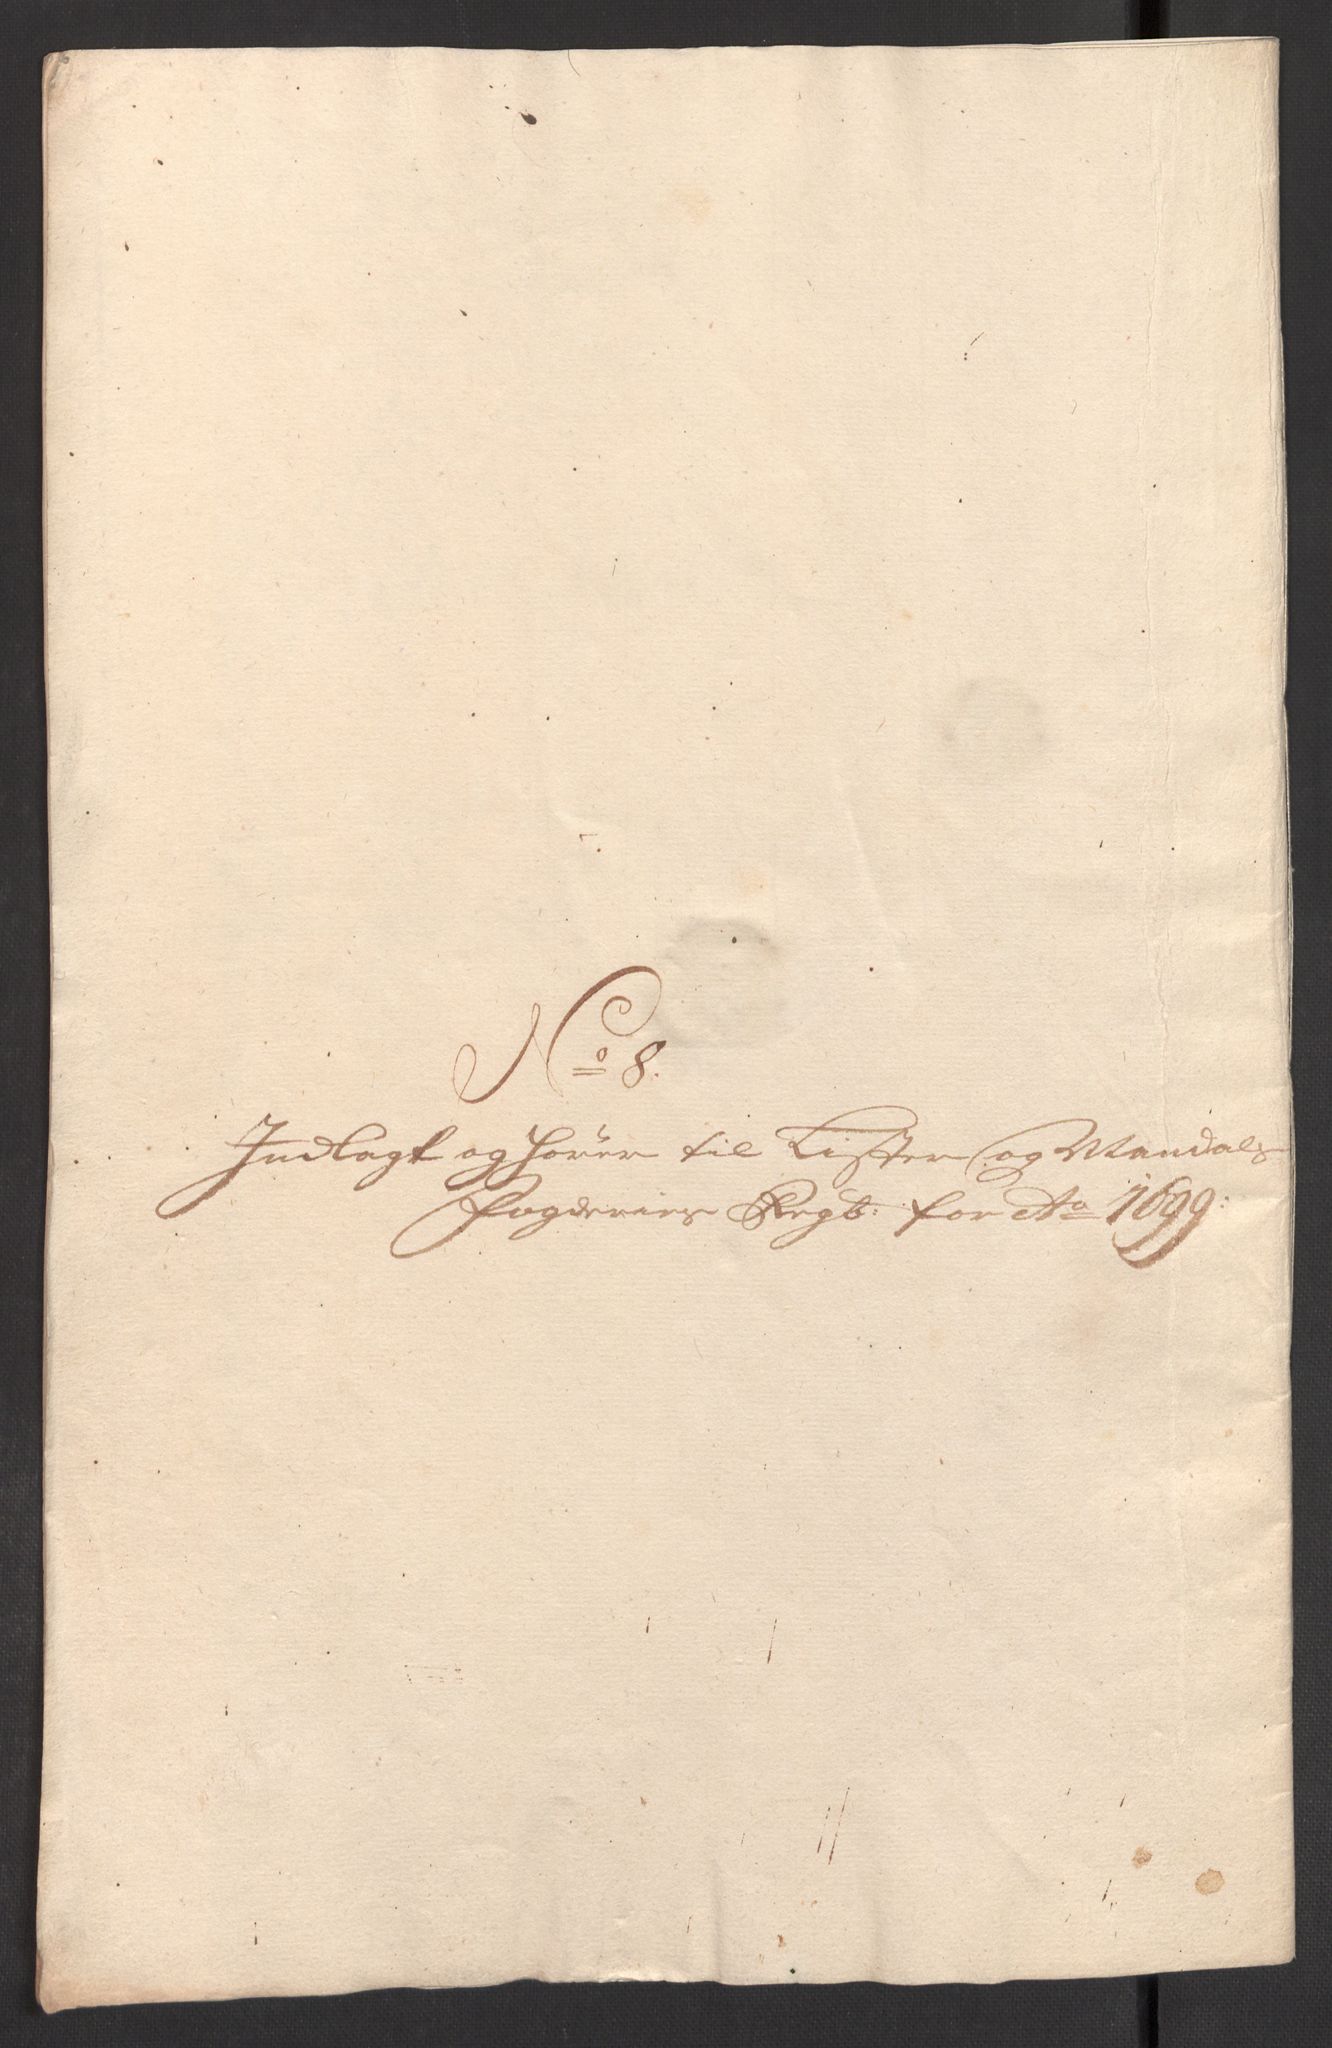 No 8.
Indlagt og hører til Lister og Mandals
Fogderies Regb: for Ao 1699: